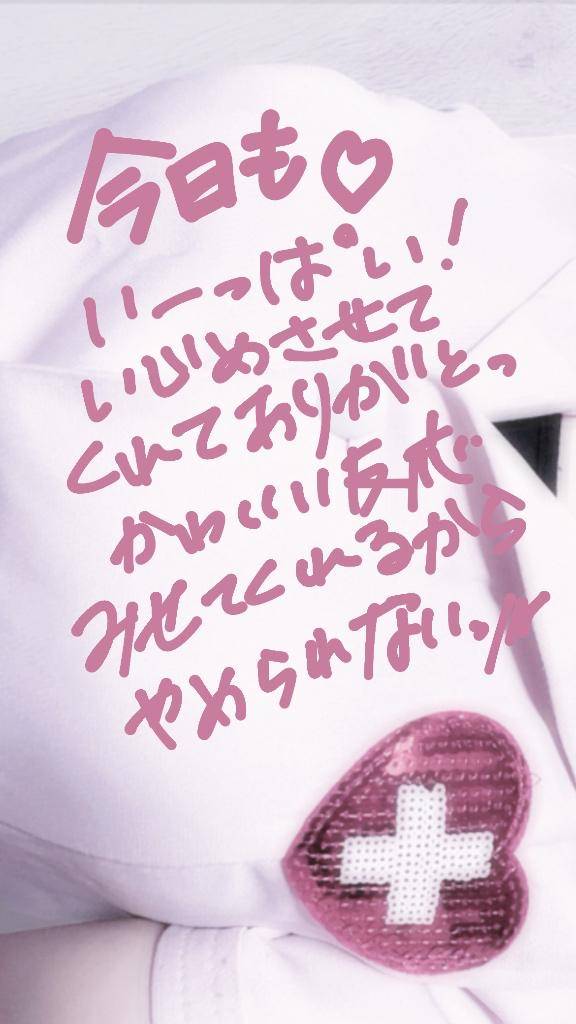 今日も♡
いーっぱい!
いじめさせて
くれてありがとっ
かわいい反応
みせてくれるから
やめられないッ